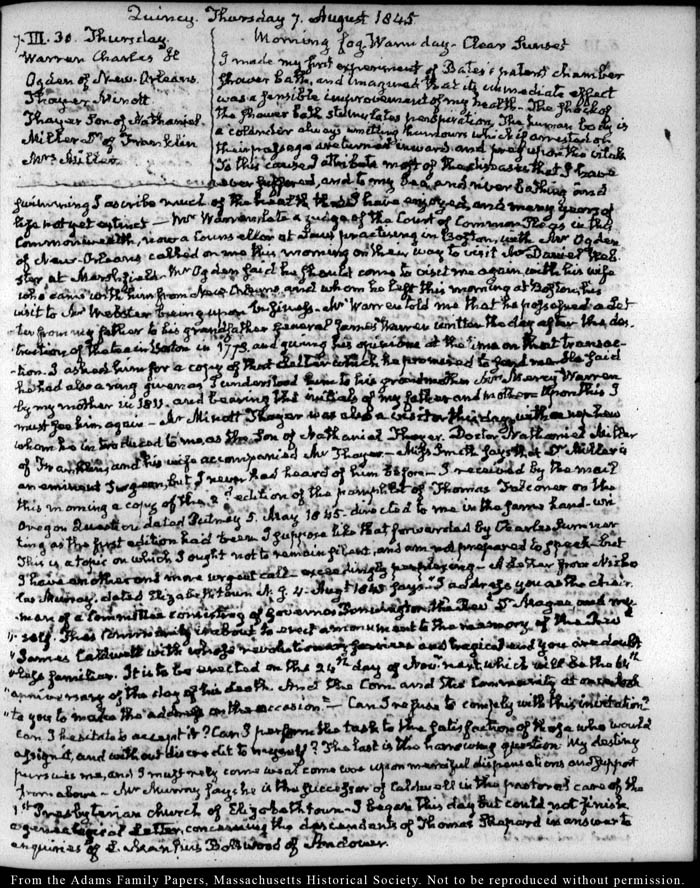 Quincy Thursday 7. August 1845
7. III. 30. Thursday
Morning fog. Warm day - Clear Sunset
Warren Charles H
Ogden of New-Orleans
Thayer Minott
Thayer Son of Nathaniel
Miller Dr. of Franklin
Mrs Miller
I made my first experiment of Bates's patent chamber
shower bath, and imagined that its immediate effect
was a sensible improvement of my health - The shock of
the shower bath stimulates perspiration. The human body is
a colander always emitting humours which if arrested on
their passage are turned inward and prey upon the vitals
To this cause I attribute most of the diseases that I have
ever suffered, and to my sea, and river bathing and
swimming I ascribe much of the health that I have enjoyed, and many years of
life not yet extinct - Mr Warren, late a judge of the Court of Common Pleas in this
Commonwealth, now a Counsellor at Law practicing in Boston, with Mr Ogden
of New-Orleans called on me this morning on their way to visit Mr Daniel Web-
ster at Marshfield. Mr Ogden said he should come to visit me again with his wife
who came with him from New Orleans and whom he left this morning at Boston, his
visit to Mr Webster being upon business. Mr Warren told me that he possessed a Let-
ter from my father to his grandfather General James Warren written the day after the des-
truction of the tea in Boston in 1773. and giving his opinions at the time on that transac-
tion. I asked him for a copy of that Letter which he promised to send me. He said
he had also a ring given as I understood him to his grandmother Mrs Mercy Warren
by my mother in 1811. and bearing the initials of my father and mother. Upon this I
must see him again - Mr Minott Thayer was also a visitor this day, with a nephew
whom he introduced to me, as the Son of Nathaniel Thayer. Doctor Nathaniel Miller
of Franklin, and his wife accompanied Mr Thayer - Miss Smith says that Dr Miller is
an eminent Surgeon, but I never had heard of him before - I received by the mail
this morning a copy of the 2d edition of the pamphlet of Thomas Falconer on the
Oregon Question dated Putney 5. May 1845. directed to me in the same hand-wri
ting as the first edition had been I suppose like that forwarded by Charles Sumner
This is a topic on which I ought not to remain silent, and am not prepared to speak - but
I have another and more urgent call - exceedingly perplexing - A Letter from Nicho
las Murray, dated Elizabethtown N. J. 4. Augt 1845 says "I address you as the chair-
"man of a Committee consisting of Governor Pennington, the Revd Dr Magee and my-
"self. This Community is about to erect a monument to the memory of the Revd
"James Caldwell with whose revolutionary services and tragical end you are doubt
"less familiar. It is to be erected on the 24th day of Nov. next, which will be the 64th
"anniversary of the day of his death. And the Com and the Community at once look
"to you to make the address on the occasion." - Can I refuse to comply with this invitation?
Can I hesitate to accept it? Can I perform the task to the satisfaction of those who would
assign it, and without discredit to myself? The last is the harrowing question. My destiny
pursues me, and I must rely come weal come woe upon merciful dispensations and support
from above - Mr Murray says he is the successor of Caldwell in the pastoral care of the
1st Presbyterian church of Elizabethtown - I began this day but could not finish
a genealogical Letter, concerning the descendents of Thomas Shepard in answer to
enquiries of Boltwood of Andover.
From the Adams Family Papers, Massachusetts Historical Society. Not to be reproduced without permission.